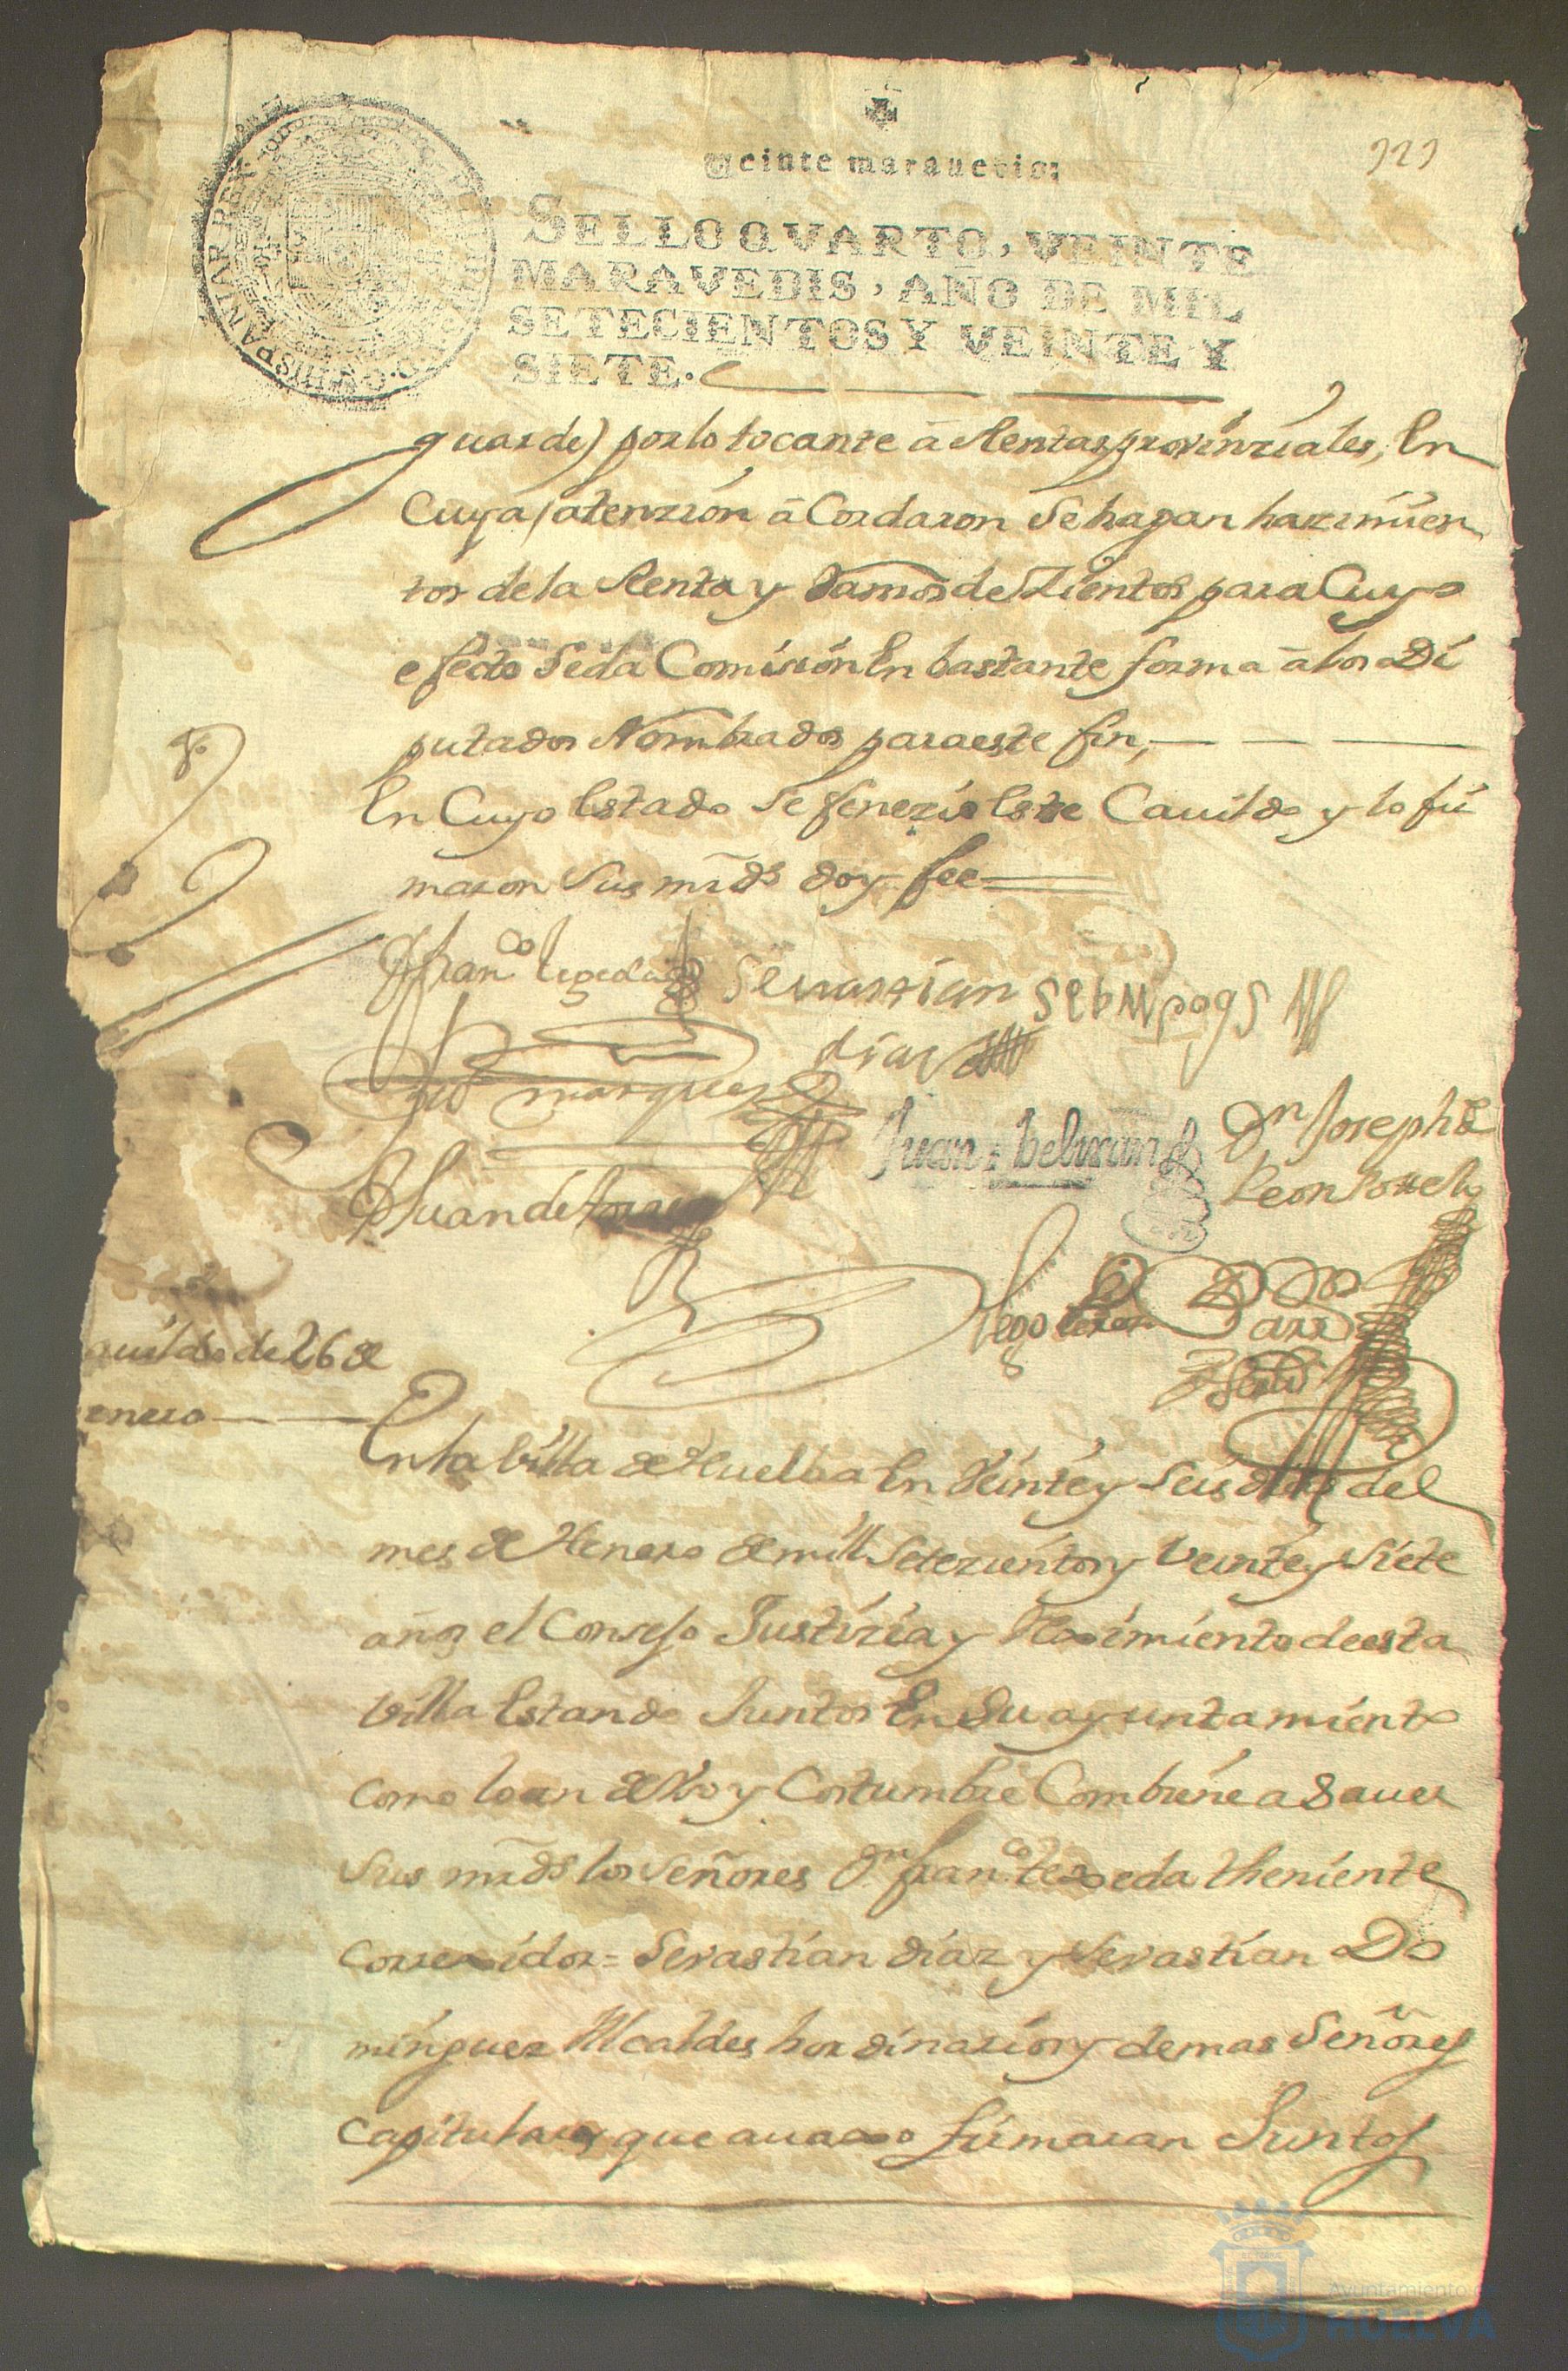 323
Veinte marauedis:
SELLO QVARTO, VEINTE
MARAVEDIS, AÑO DE MIL
SETECIENTOS Y VEINTE Y
SIETE.
HISPANIAR. REX
guarde) por lo tocante â Rentas provinziales, En
Cuya atenzion âCordaron Sehagan hazimien
tos dela Renta y Ramos de Zientos para Cuyo
efecto Seda Comision En bastante forma â los Di
putados Nombrados paraeste fin,
En Cuyo Estado Se fenezio Este Cauildo y lo fir
maron Sus mrds doy fee
Franco. tegeda
Seuastian
dias
Juan beltran
Dn Joseph de
Leon
marquez
Juan de
Diego
auildo de 26 de
enero
En la Villa de Huelba En Veinte y Seis dias del
mes de Henero de mill Setezientos y Veinte y Siete
años el Consejo Justizia y Reximiento deesta
Villa Estando Juntos En Su ayuntamiento
como lo an de Vso y Costumbre Combiene a Sauer
Sus mrds los Señores Dn. franco. texeda theniente
correxidor = Sevastian diaz y Sevastian Do
minguez Alcaldes hordinarios y demas Señores
capitulares que auaxo firmaran Juntos
Ayuntamiento de
HUELVA